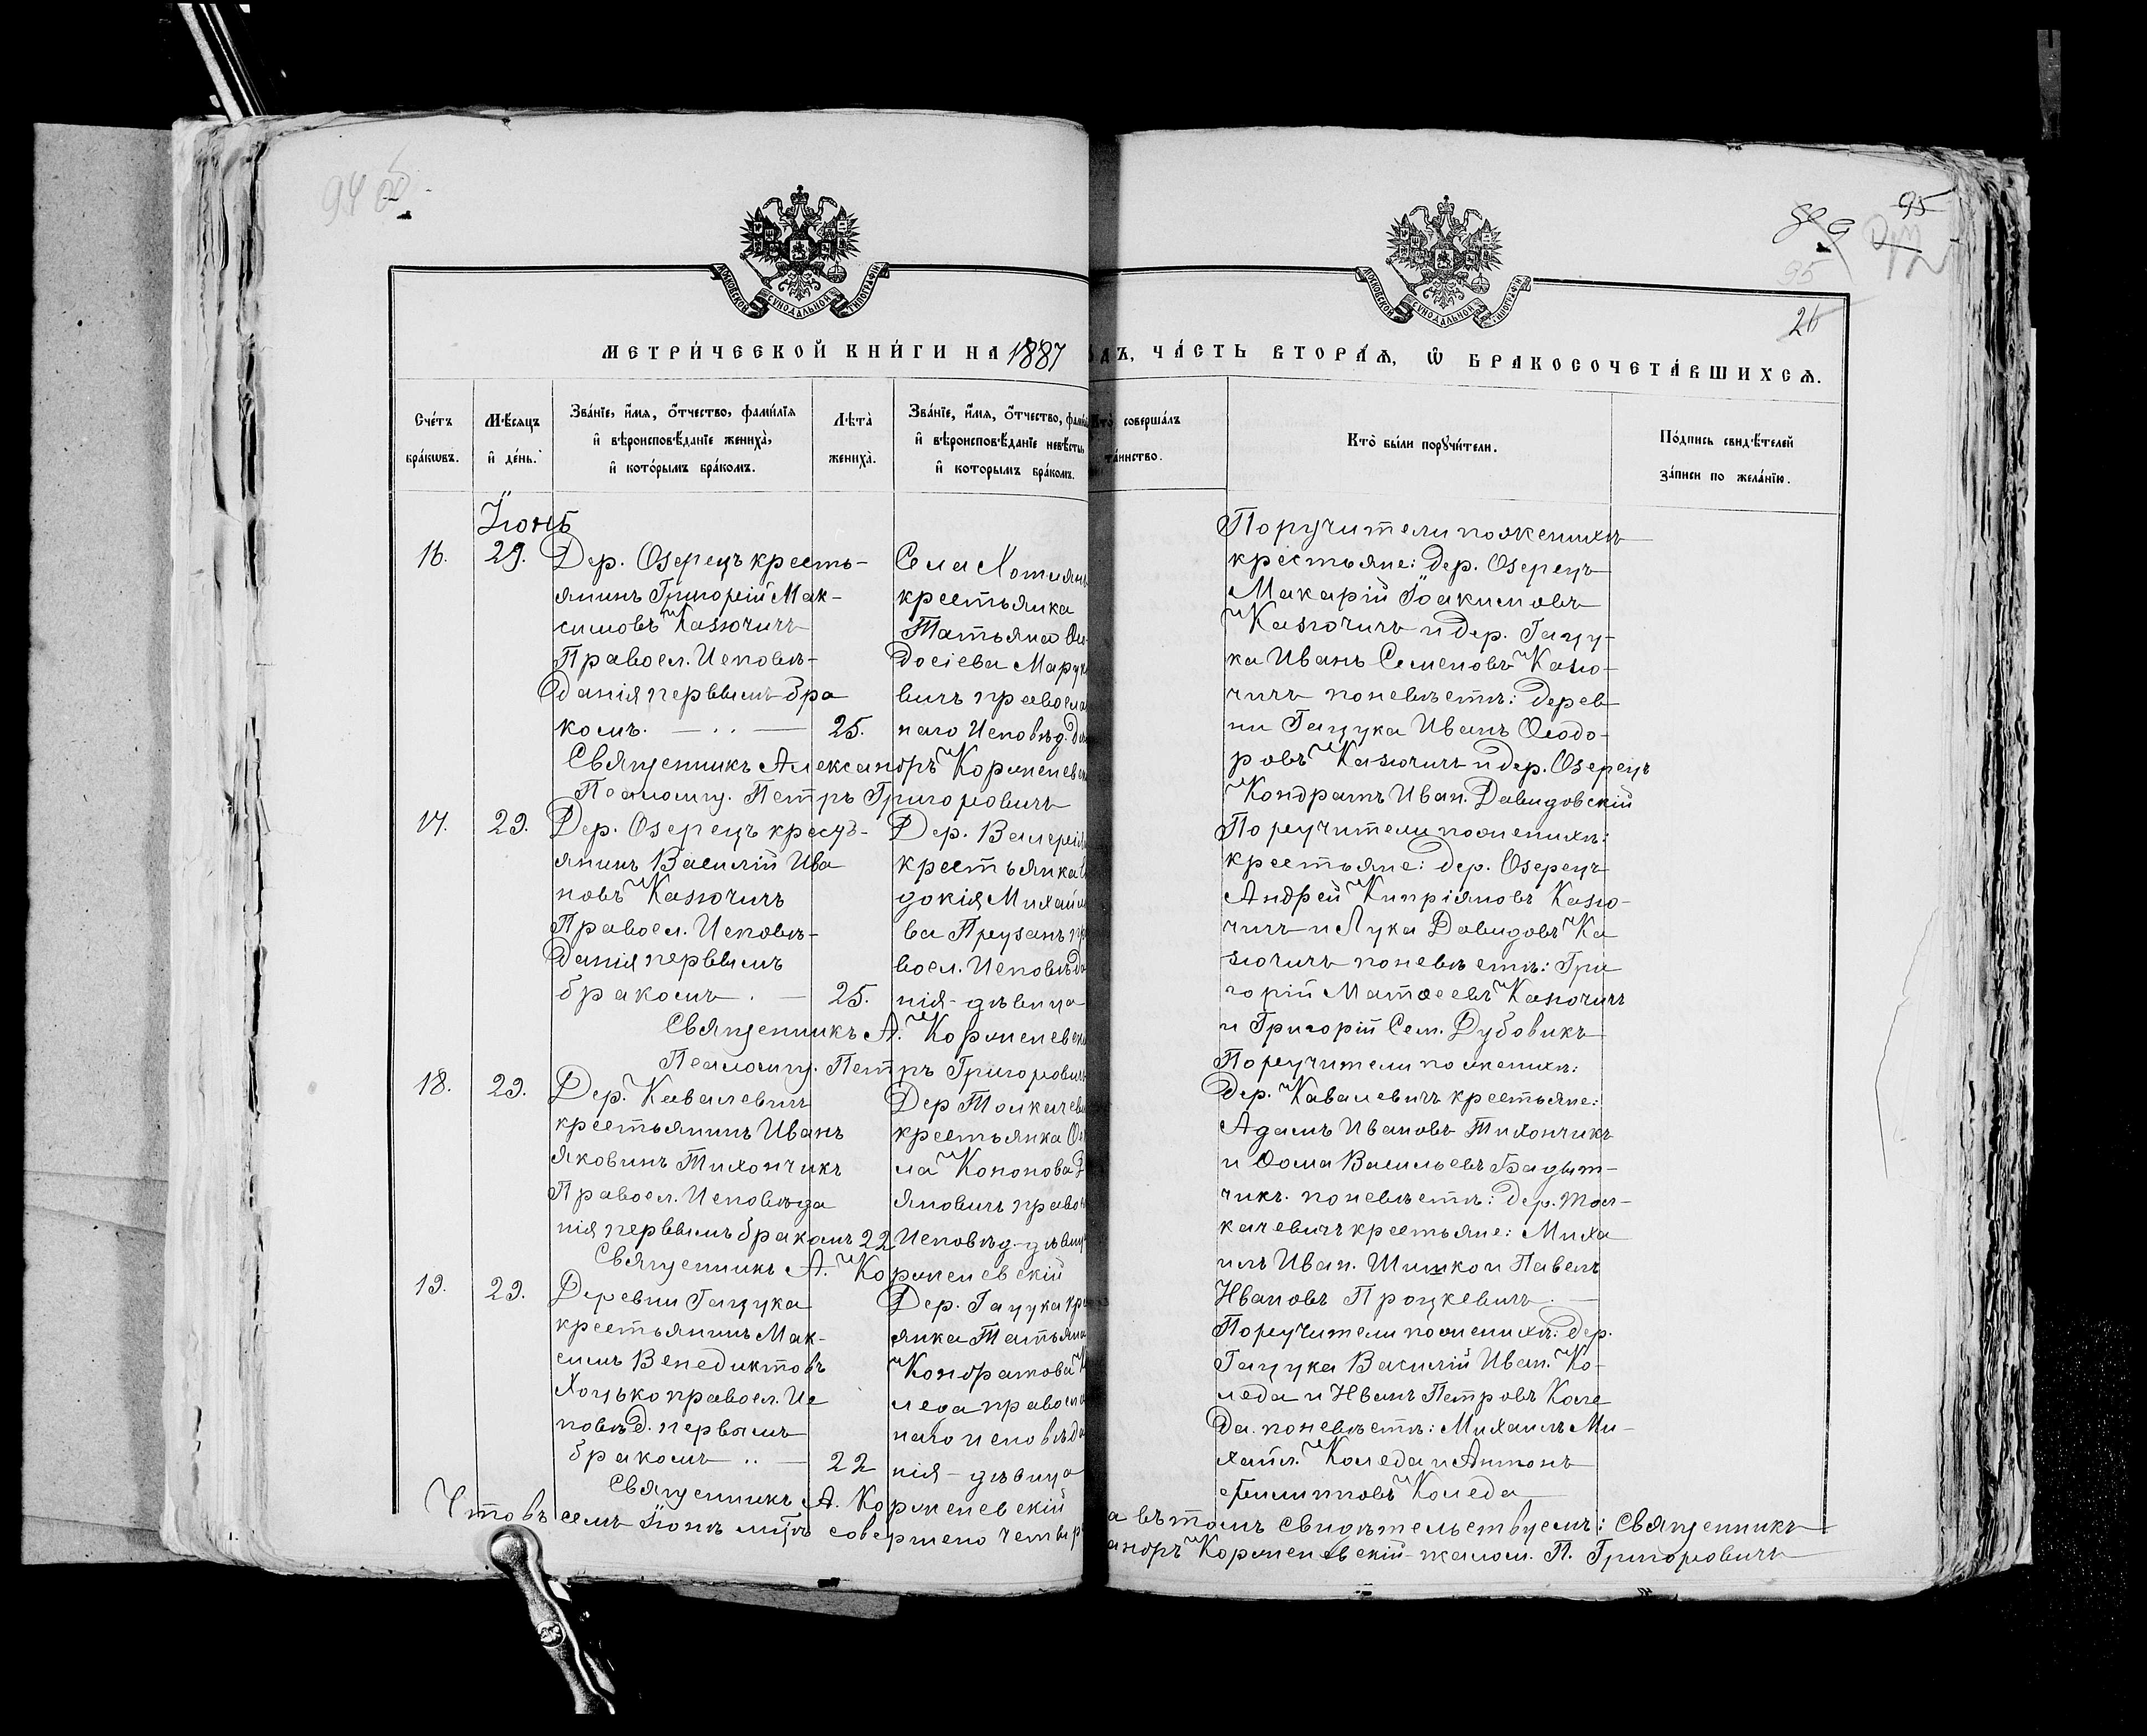 94 об
95
95
26
МОСКОВСКОЙ СУНОДАЛЬНОЙ ТИПОГРАФІИ
МОСКОВСКОЙ СУНОДАЛЬНОЙ ТИПОГРАФІИ
МЕТРИ́ЧЕСКОЙ КНИ́ГИ НА 1887
ОДЪ, ЧА́СТЬ ВТОРА́Ѧ, Ѽ БРАКОСОЧЕТА́ВШИХСѦ.
Сче́тъ
бра́кѡвъ.
Мѣ́сяцъ
и҆ де́нь.
Зва́нїе, и҆́мѧ, ѻ҆́тчество, фами́лїѧ
и҆ вѣроисповѣ́данїе жениха̀,
и҆ кото́рымъ бра́комъ.
Лѣта̀
жениха̀.
Зва́нїе, и҆́мѧ, ѻ҆́тчество, фами́лї
и҆ вѣроисповѣ́данїе невѣ́сты,
и҆ которымъ бра́комъ.
Кто̀ соверша́лъ
та́инство.
Кто̀ бы́ли порꙋчи́тели.
По́дпись свидѣ́телей
за́писи по жела́нїю.
Іюнь
16.
29.
Дер. Озерецъ кресть-
янинъ Григорій Мак-
симовъ Казючичъ
Правосл. Исповѣ-
данія первымъ бра
комъ. — .. —
25.
Села Хотлян
крестьянка
Татьяна Ѳео
досіева Марук
вичъ правосла
наго Исповѣд. дѣ
Священникъ Александръ Корженевск
Псаломщ. Петръ Григоровичъ
Поручители по женихѣ
крестьяне: дер. Озерецъ
Макарій Іоакимовъ
Казючичъ и дер. Гацу-
ка Иванъ Семеновъ Казю-
чичъ по невѣстѣ: дерев
ни Гацука Иванъ Ѳеодо-
ровъ Казючичъ и дер. Озерецъ
Кондратъ Иван. Давидовскій
17.
29.
Дер. Озерецъ крест-
янинъ Василій Ива
новъ Казючичъ
Правосл. Исповѣ-
данія первымъ
бракомъ . —
25.
Дер. Валерія
крестьянка Ев
докія Михайло
ва Прузанъ пр
восл. Исповѣда
нія - дѣвица
Священникъ А. Корженевск
Псаломщ. Петръ Григорович
Поручители по женихѣ:
крестьяне: дер. Озерецъ
Андрей Кипріяновъ Казю-
чичъ и Лука Давидовъ Ка
зючичъ по невѣстѣ: Гри
горій Матѳеевъ Казючичъ
и Григорій Сем. Дубовикъ
18.
29.
Дер. Кавалевичъ
крестьянинъ Иванъ
Яковинъ Тихончикъ
Правосл. Исповѣда
нія первымъ бракомъ
22
Дер Толкачеви
крестьянка Ѳе
ла Кононова
Яновичъ право
Исповѣд - дѣвиц
Священникъ А. Корженевскій
Поручители по женихѣ:
дер. Кавалевичъ крестьяне:
Адамъ Ивановъ Тихончикъ
и Ѳома Васильевъ Бадыт-
чикъ. по невѣстѣ: дер. Тол-
качевичъ крестьяне: Миха
илъ Иван. Шишко и Павелъ
Ивановъ Процкевичъ. —
19.
29.
Деревни Гацука
крестьянинъ Мак-
симъ Венедиктовъ
Хоцько правосл. Ис
повѣд. первымъ
бракомъ .. —
22
Дер. Гацука кре
янка Татьяна
Кондратова К
леда правосла
наго исповѣда
нія - дѣвица
Священникъ А. Корженевскій
Поручители по женихѣ: дер.
Гацука Василій Иван. Ко-
леда и Иванъ Петровъ Коле
да. по невѣстѣ: Михаилъ Ми-
хайл. Коледа и Антонъ
Филипповъ Коледа
Что въ семъ Іюнѣ мцѣ совершено четыр
а въ томъ свидѣтельствуемъ: Священникъ
андръ Корженевскій - псалом. П. Григоровичъ